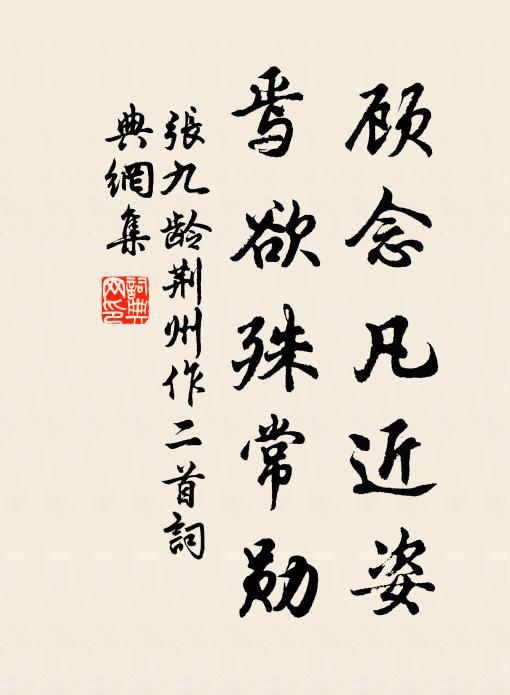 顾念凡近姿
焉欲殊常勋
張九龄荆州作二首詞
典網集
詞典
网印